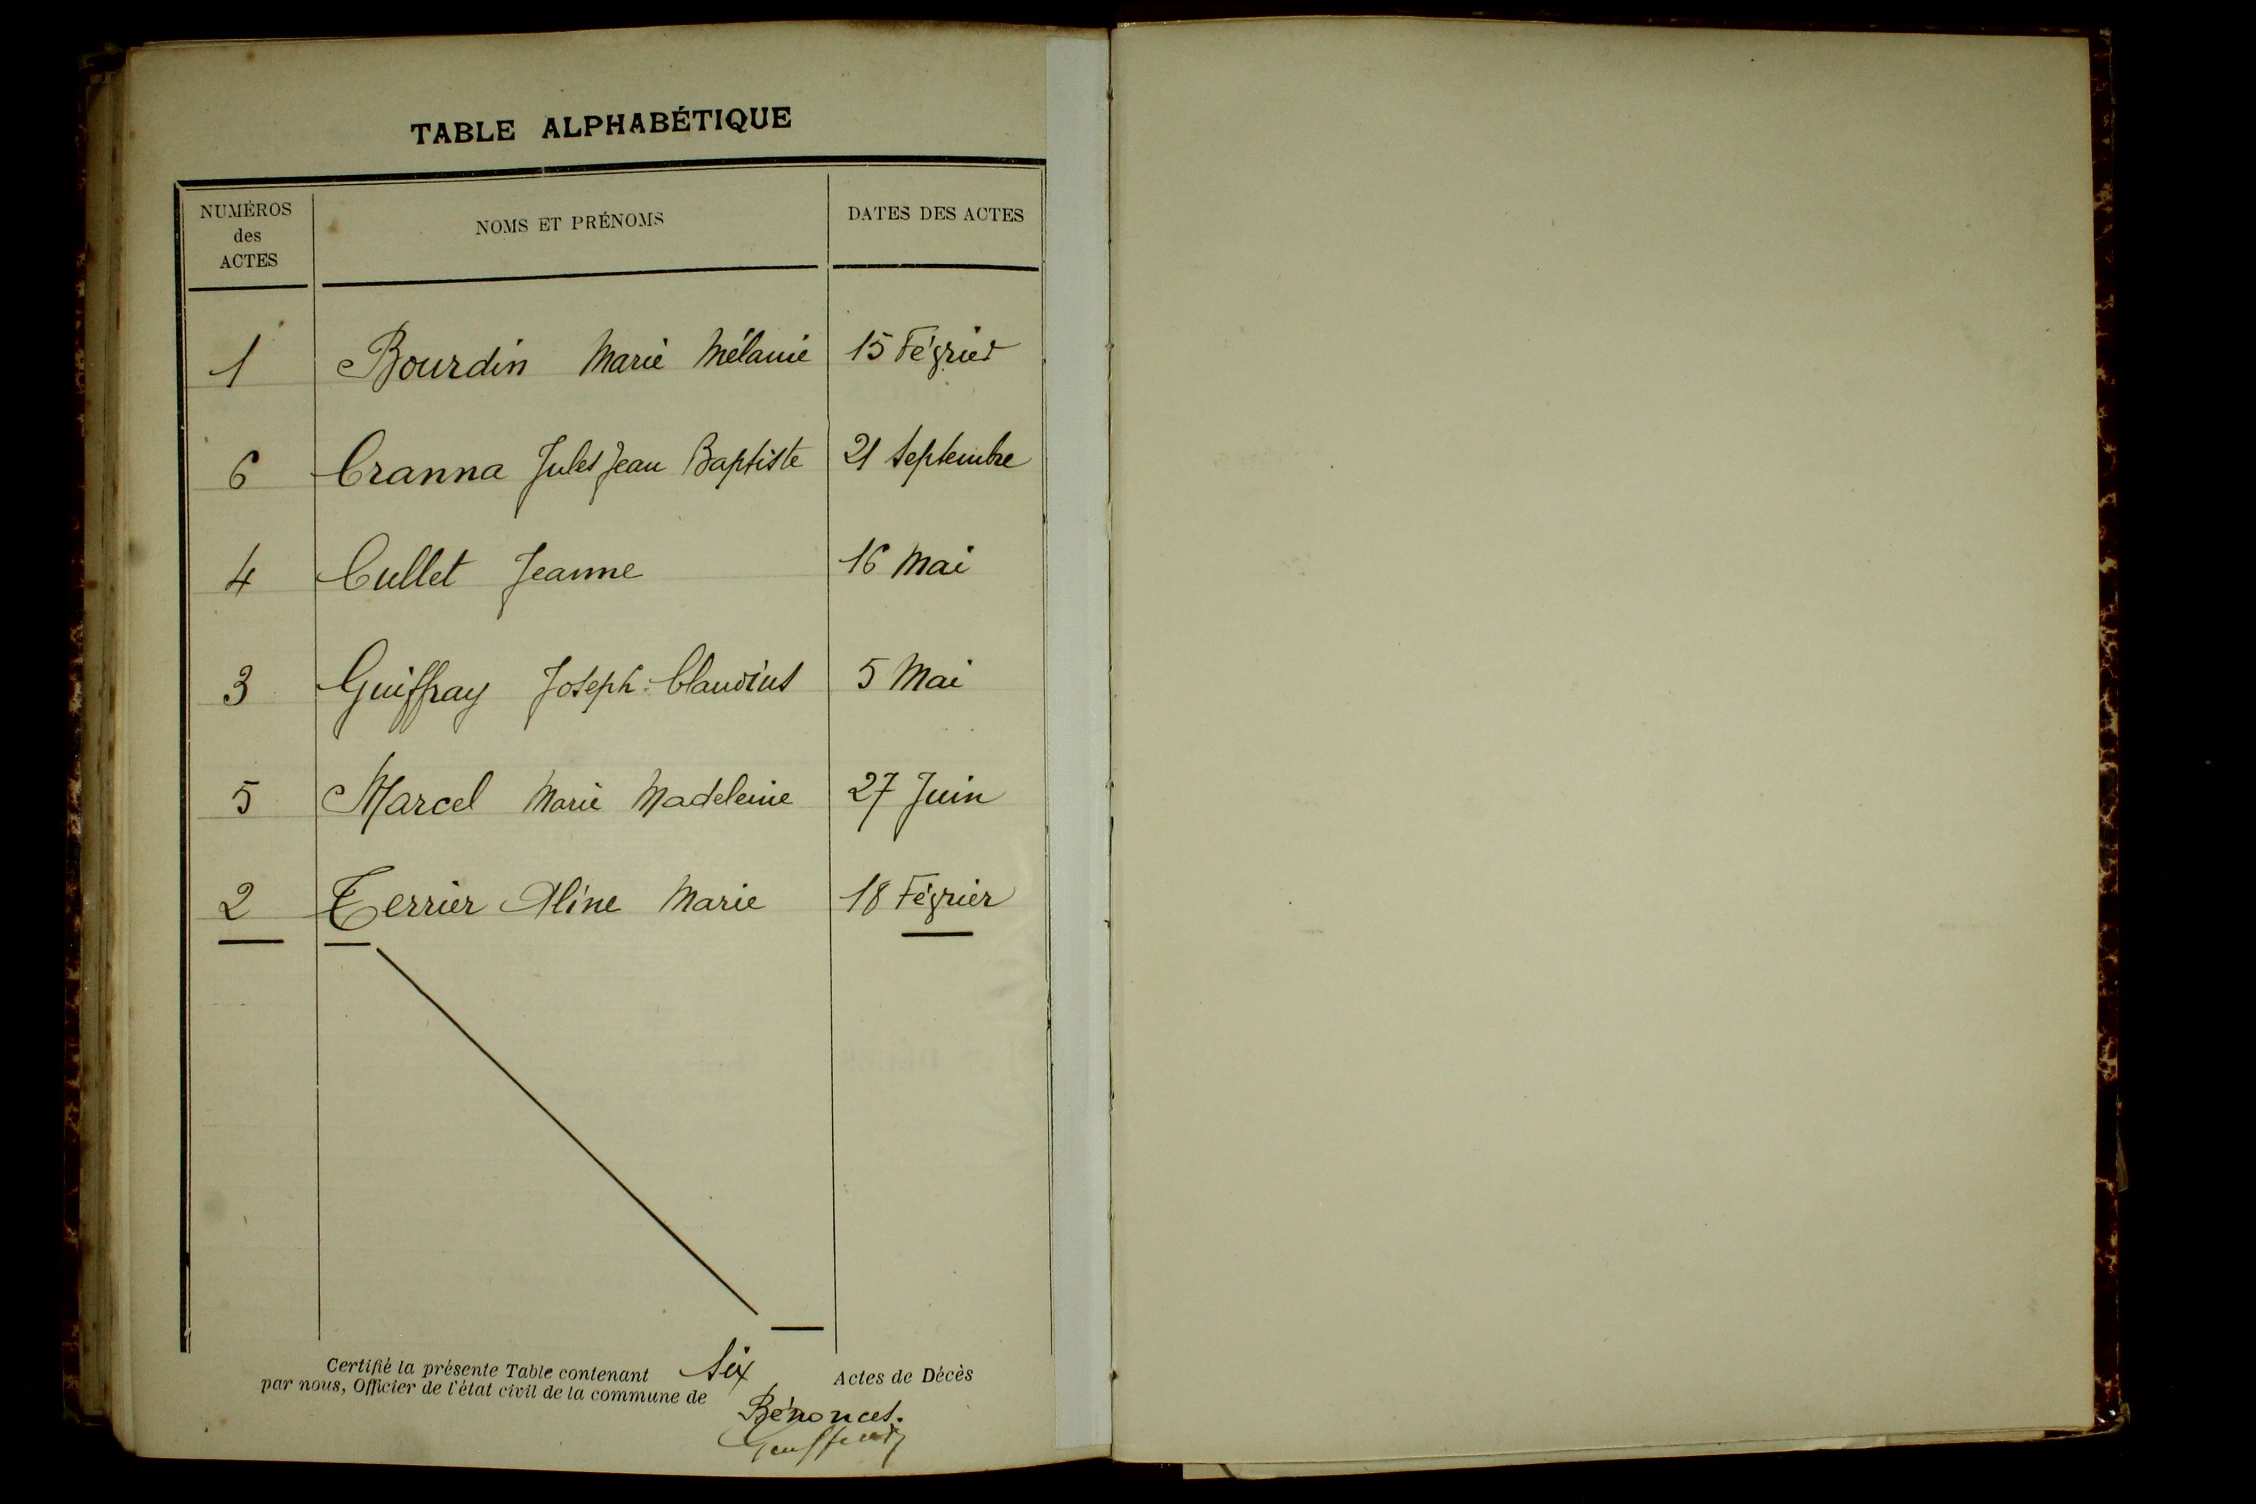 TABLE ALPHABÉTIQUE
NUMÉROS
des
ACTES
NOMS ET PRÉNOMS
DATES DES ACTES
1 Bourdin Marie Mélanie 15 Février
6 Cranna Jules Jean Baptiste 21 Septembre
4 Cullet Jeanne 16 Mai
3 Guiffray Joseph Claudius 5 Mai
5 Marcel Marie Madeleine 27 Juin
2 Terrier Aline Marie 18 Février
Certifié la présente Table contenant Six Actes de Décès
par nous, Officier de l'état civil de la commune de
Bénonces.